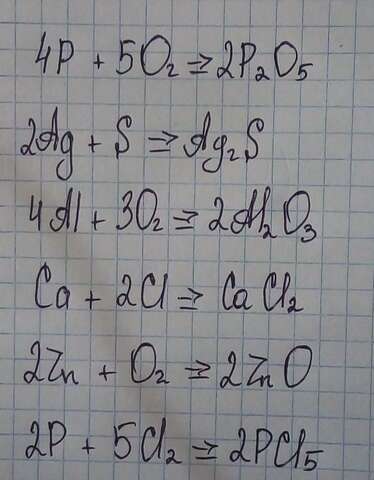 4P + 5O₂ => 2P₂O₅
2Ag + S => Ag₂S
4Al + 3O₂ => 2Al₂O₃
Ca + 2Cl => CaCl₂
2Zn + O₂ => 2ZnO
2P + 5Cl₂ => 2PCl₅